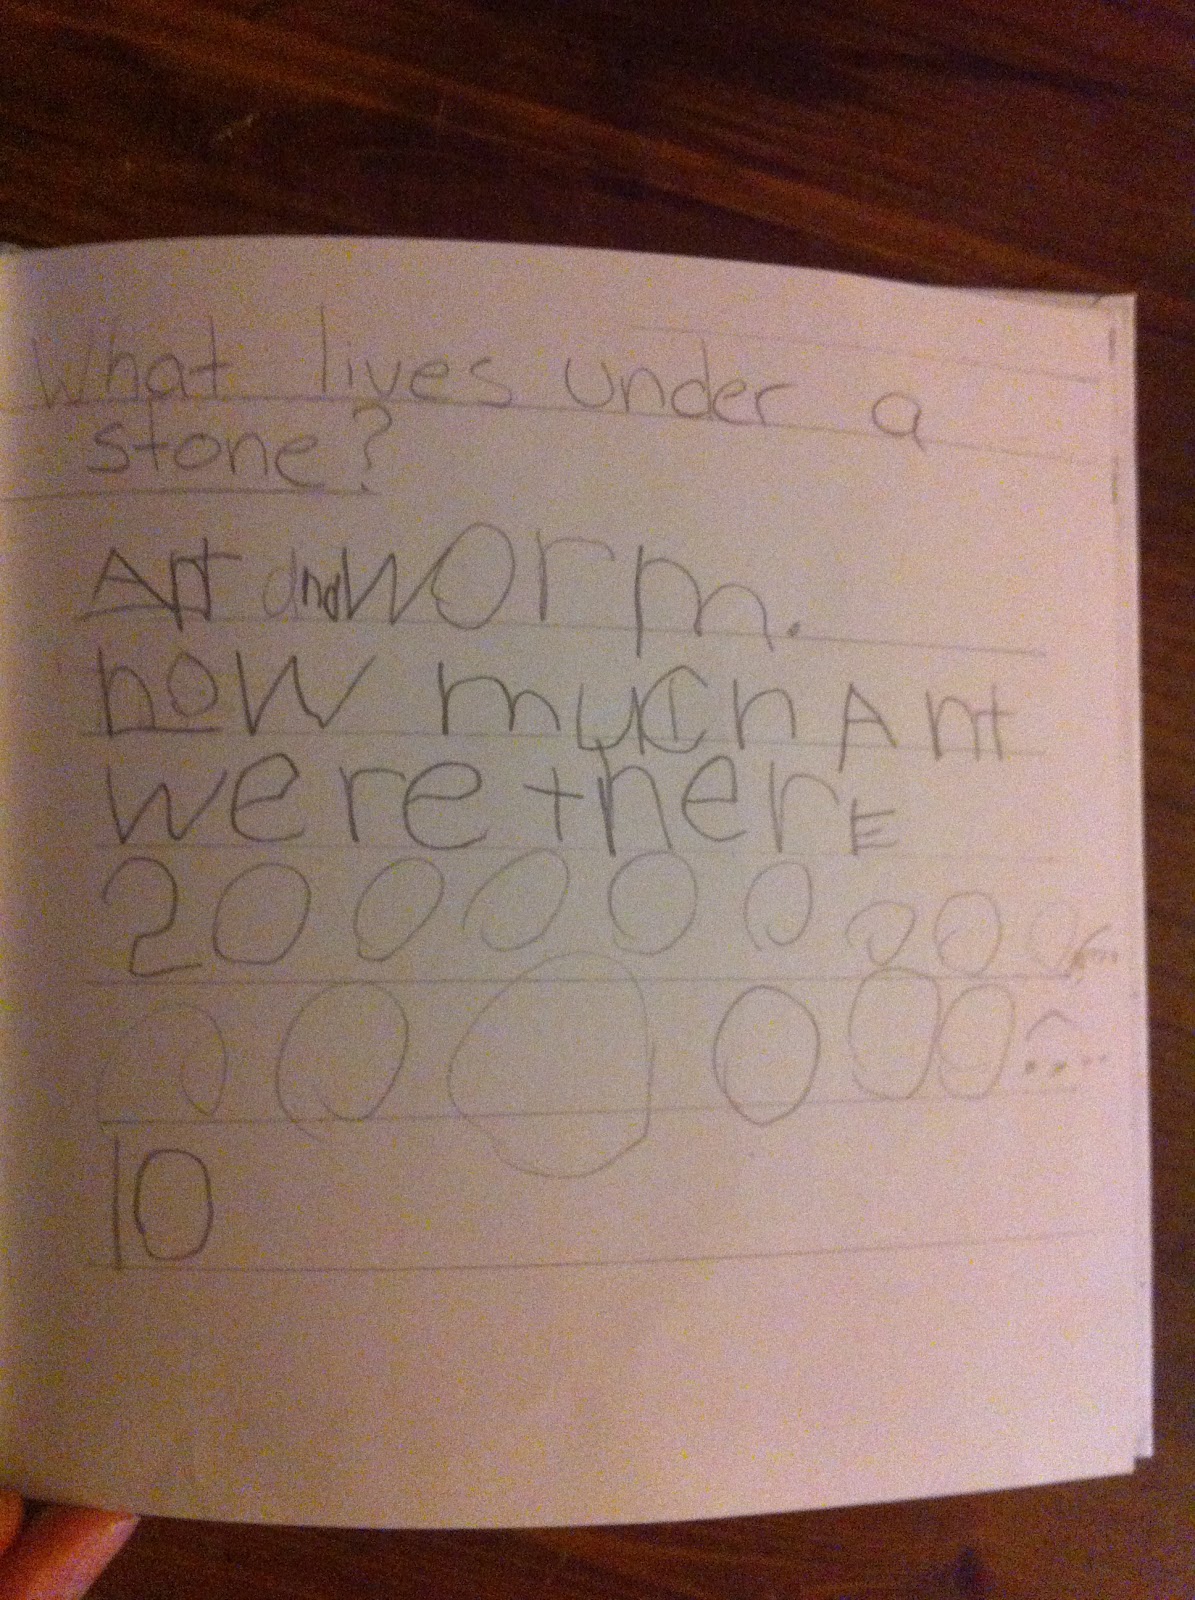 What lives under a
stone?
Ant and worm.
how much Ant
were therE
200000000
000000....
10